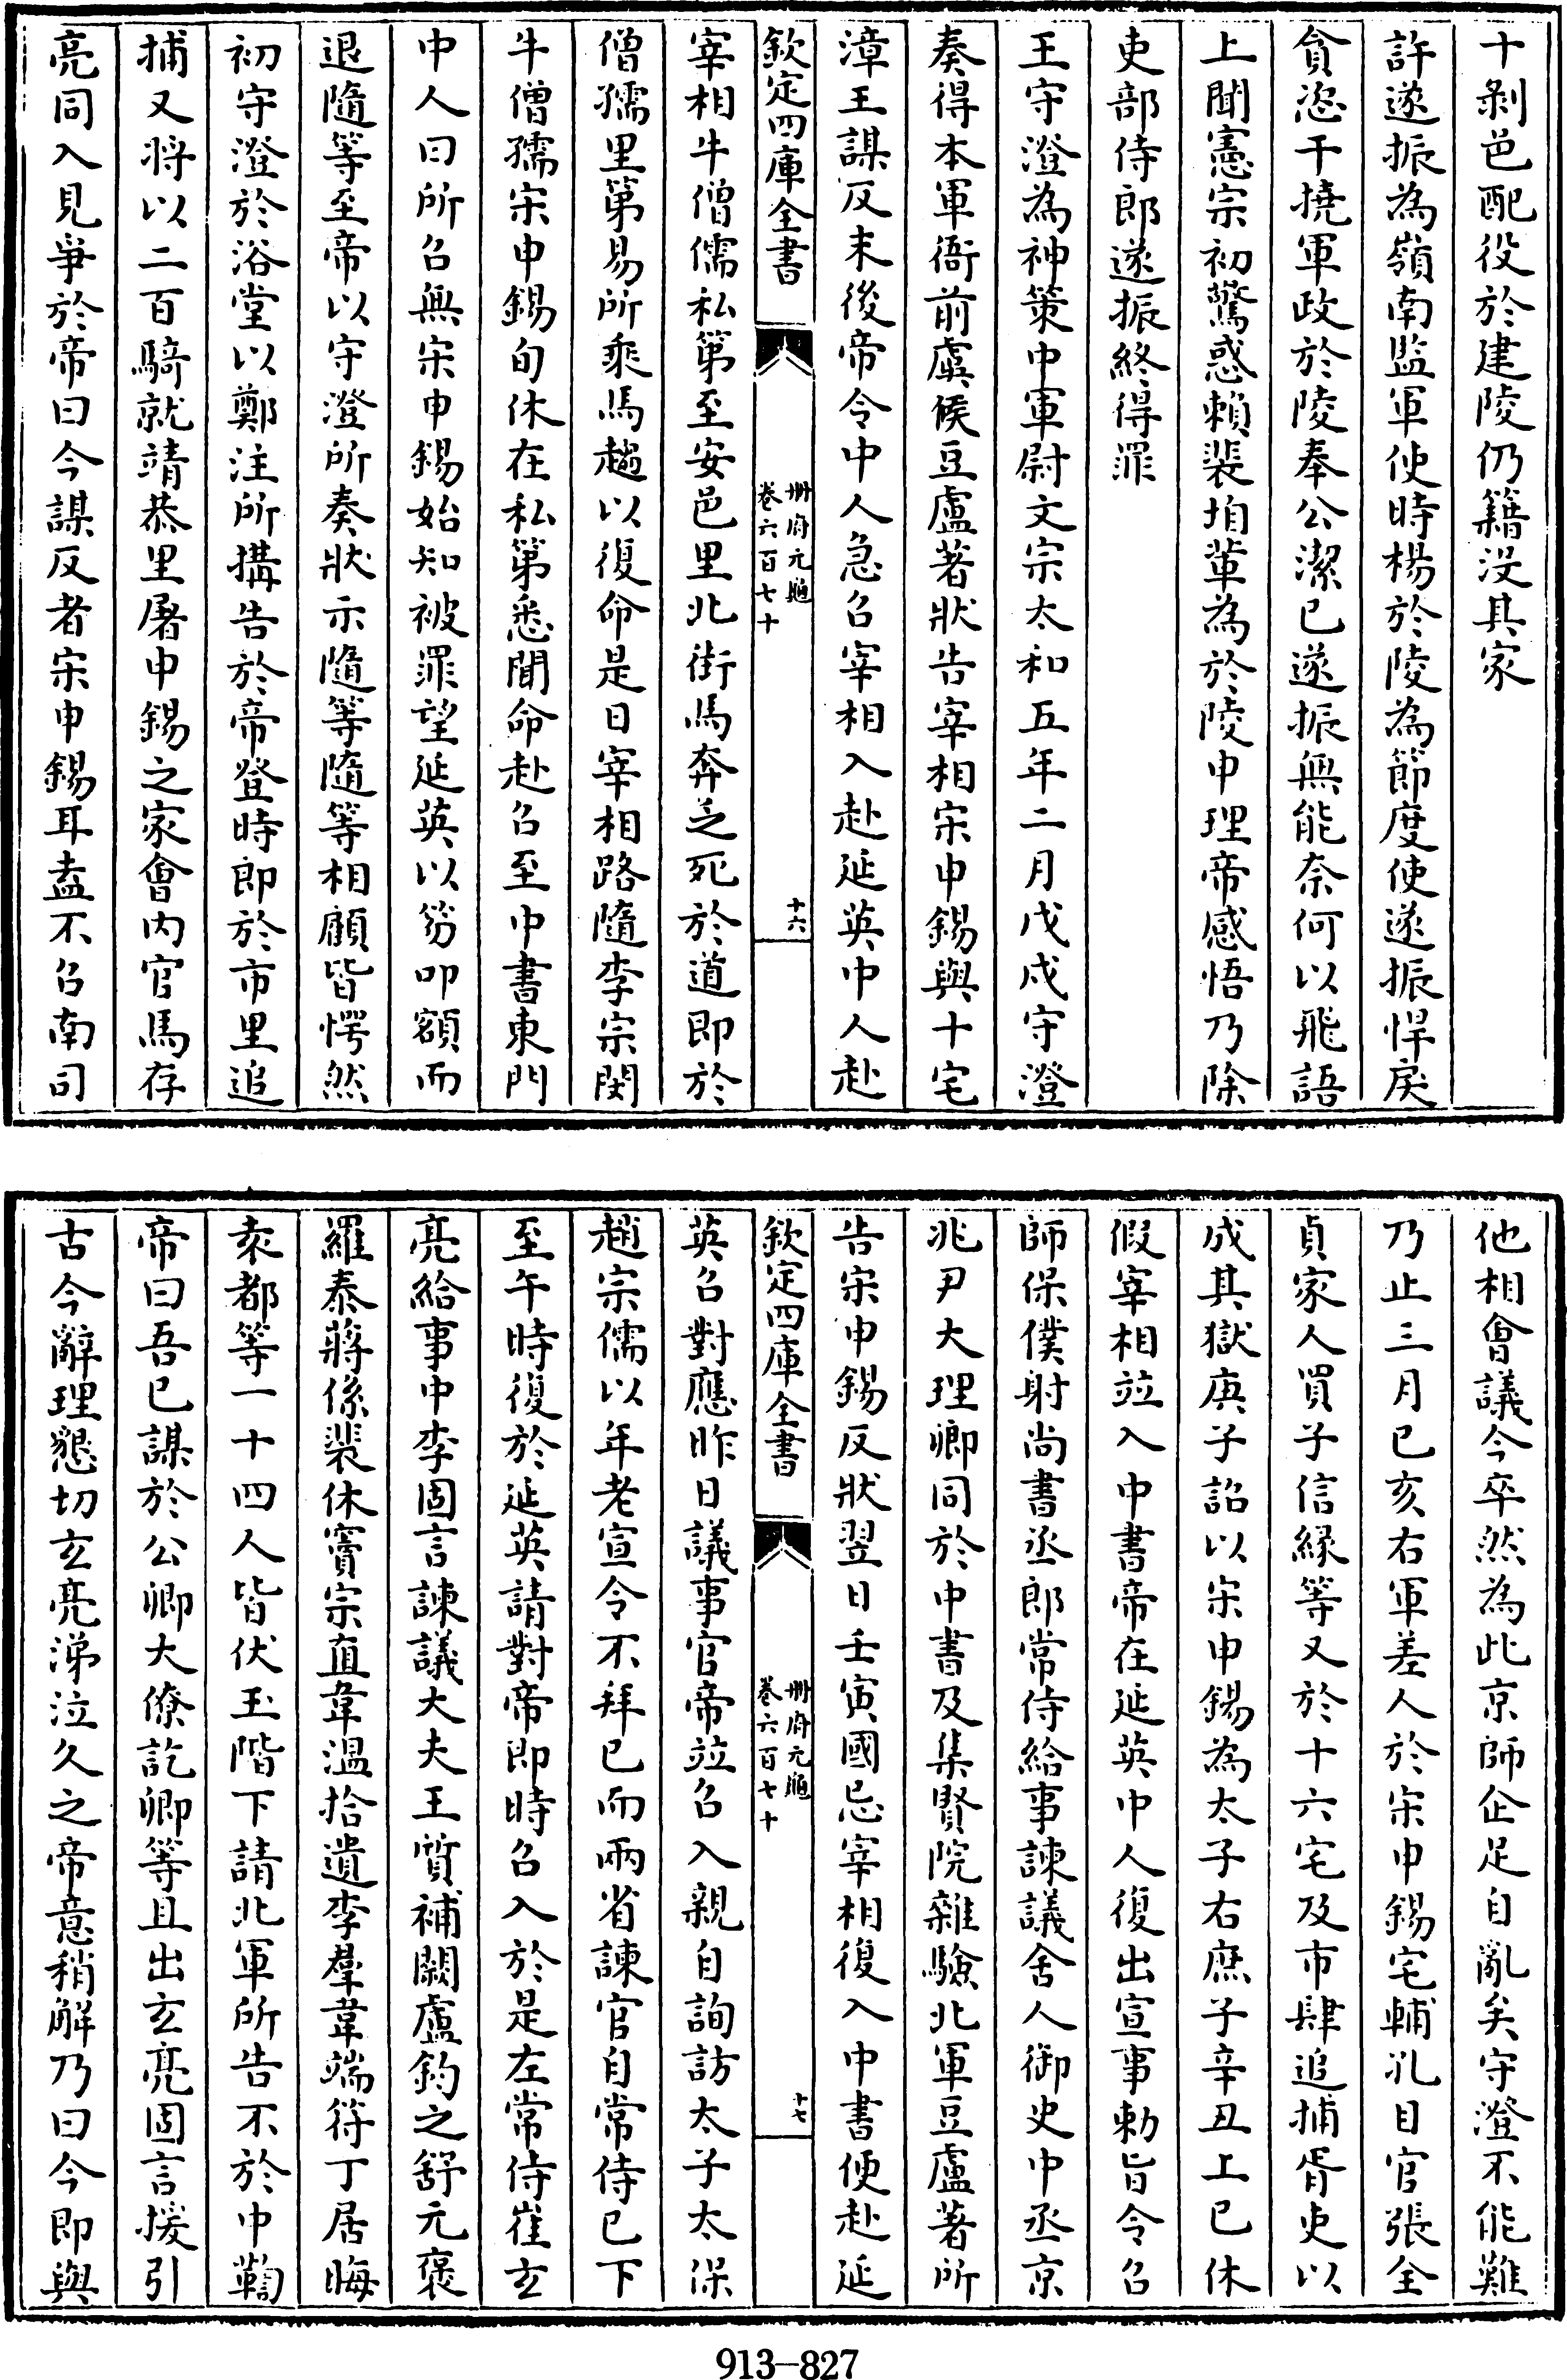 十剝邑配役於建陵仍籍沒其家
許遂振為嶺南監軍使時楊於陵為節度使遂振悍戾
貪恣干撓軍政於陵奉公潔已遂振無能奈何以飛語
上聞憲宗初驚惑賴裴垍輩為於陵申理帝感悟乃除
吏部侍郎遂振終得罪
王守澄為神策中軍尉文宗太和五年二月戊戌守澄
奏得本軍衙前虞候豆盧著狀告宰相宋申錫與十宅
漳王謀反末後帝令中人急召宰相入赴延英中人赴
欽定四庫全書
冊府元龜
卷六百七十
十六
宰相牛僧儒私第至安邑里北街馬奔乏死於道即於
僧孺里第易所乘馬趨以復命是日宰相路隨李宗閔
牛僧孺宋申錫旬休在私第悉聞命赴召至中書東門
中人曰所召無宋申錫始知被罪望延英以笏叩額而
退隨等至帝以守澄所奏狀示隨等隨等相顧皆愕然
初守澄於浴堂以鄭注所搆告於帝登時即於市里追
捕又將以二百騎就靖恭里屠申錫之家會內官馬存
亮同入見爭於帝曰今謀反者宋申錫耳盍不召南司
他相會議今卒然為此京師企足自亂矣守澄不能難
乃止三月已亥右軍差人於宋申錫宅輔孔目官張全
貞家人買子信緣等又於十六宅及市肆追捕胥吏以
成其獄庚子詔以宋申錫為太子右庶子辛丑上巳休
假宰相竝入中書帝在延英中人復出宣事勅旨令召
師保僕射尚書丞郎常侍給事諫議舍人御史中丞京
兆尹大理卿同於中書及集賢院雜驗北軍豆盧著所
告宋申錫反狀翌日壬寅國忌宰相復入中書便赴延
欽定四庫全書
冊府元龜
卷六百七十
十七
英召對應昨日議事官帝竝召入親自詢訪太子太保
趙宗儒以年老宣令不拜已而兩省諫官自常侍已下
至午時復於延英請對帝即時召入於是左常侍崔玄
亮給事中李固言諫議大夫王質補闕盧鈞之舒元褒
羅泰蔣係裴休竇宗直韋溫拾遺李羣韋端符丁居晦
袁都等一十四人皆伏玉階下請北軍所告不於中鞫
帝曰吾已謀於公卿大僚訖卿等且出玄亮固言援引
古今辭理懇切玄亮涕泣久之帝意稍解乃曰今即與
913-827